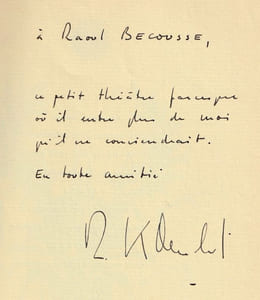 à Raoul BECOUSSE,
ce petit théâtre farcesque
où il entre plus de moi
qu'il ne conviendrait.
En toute amitié